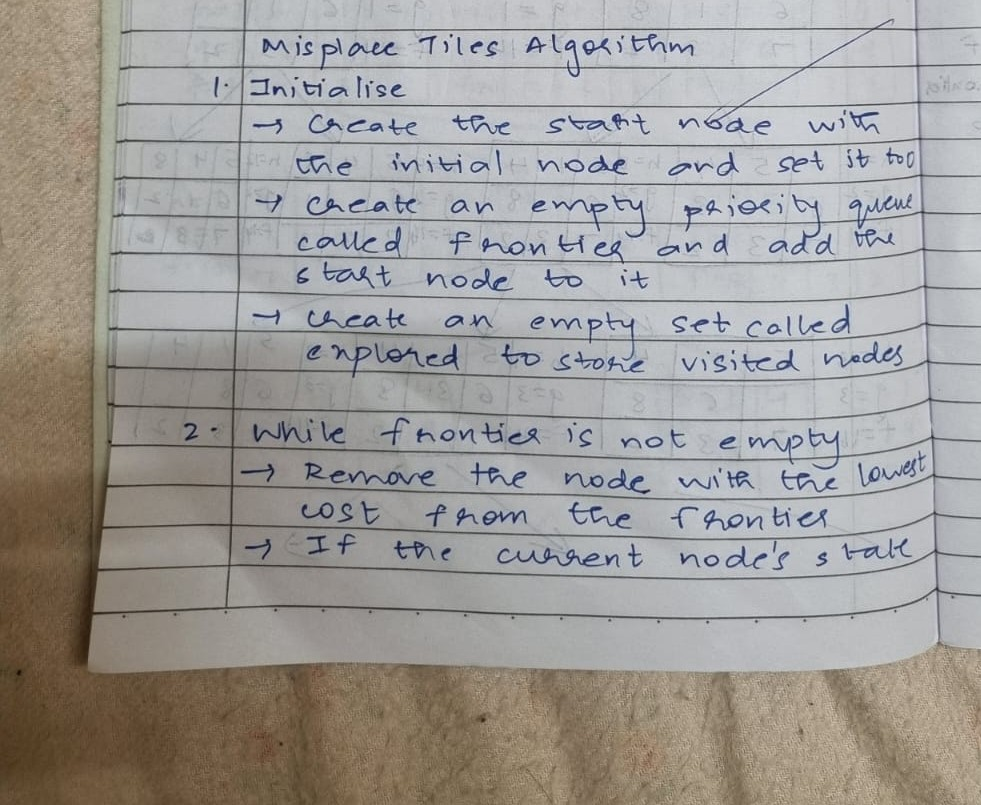 Misplace Tiles Algorithm
1. Initialise
→ Create the start node with
the initial node and set it to 0
→ create an empty priority queue
called frontier and add the
start node to it
→ create an empty set called
explored to store visited nodes
2. While frontier is not empty
→ Remove the node with the lowest
cost from the frontier
→ If the current node's state